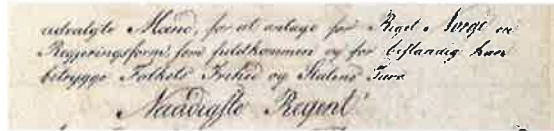 udvalgte Mænd, for at anlage for Riget Norge en
Regjeringsform, som fuldkommen og for bestandig kan
betrygge Folkets Frihed og Statens Tarv
Naadigste Regent